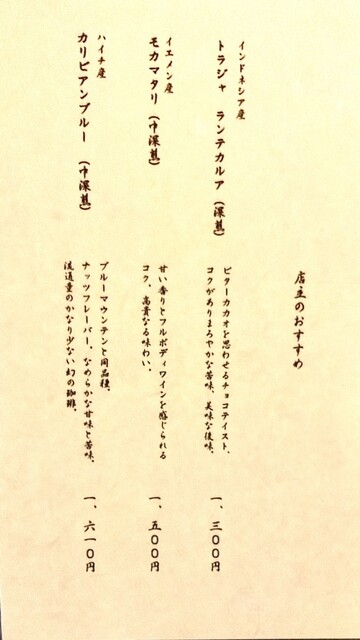 店主のおすすめ
インドネシア産
トラジャ ランテカルア (深煎)
ビターカカオを思わせるチョコテイスト、
コクがありまろやかな苦味、美味な後味。
一、三〇〇円
イエメン産
モカマタリ (中深煎)
甘い香りとフルボディワインを感じられる
コク、高貴なる味わい。
一、五〇〇円
ハイチ産
カリビアンブルー (中深煎)
ブルーマウンテンと同品種。
ナッツフレーバー、なめらかな甘味と苦味。
流通量のかなり少ない幻の珈琲。
一、六一〇円